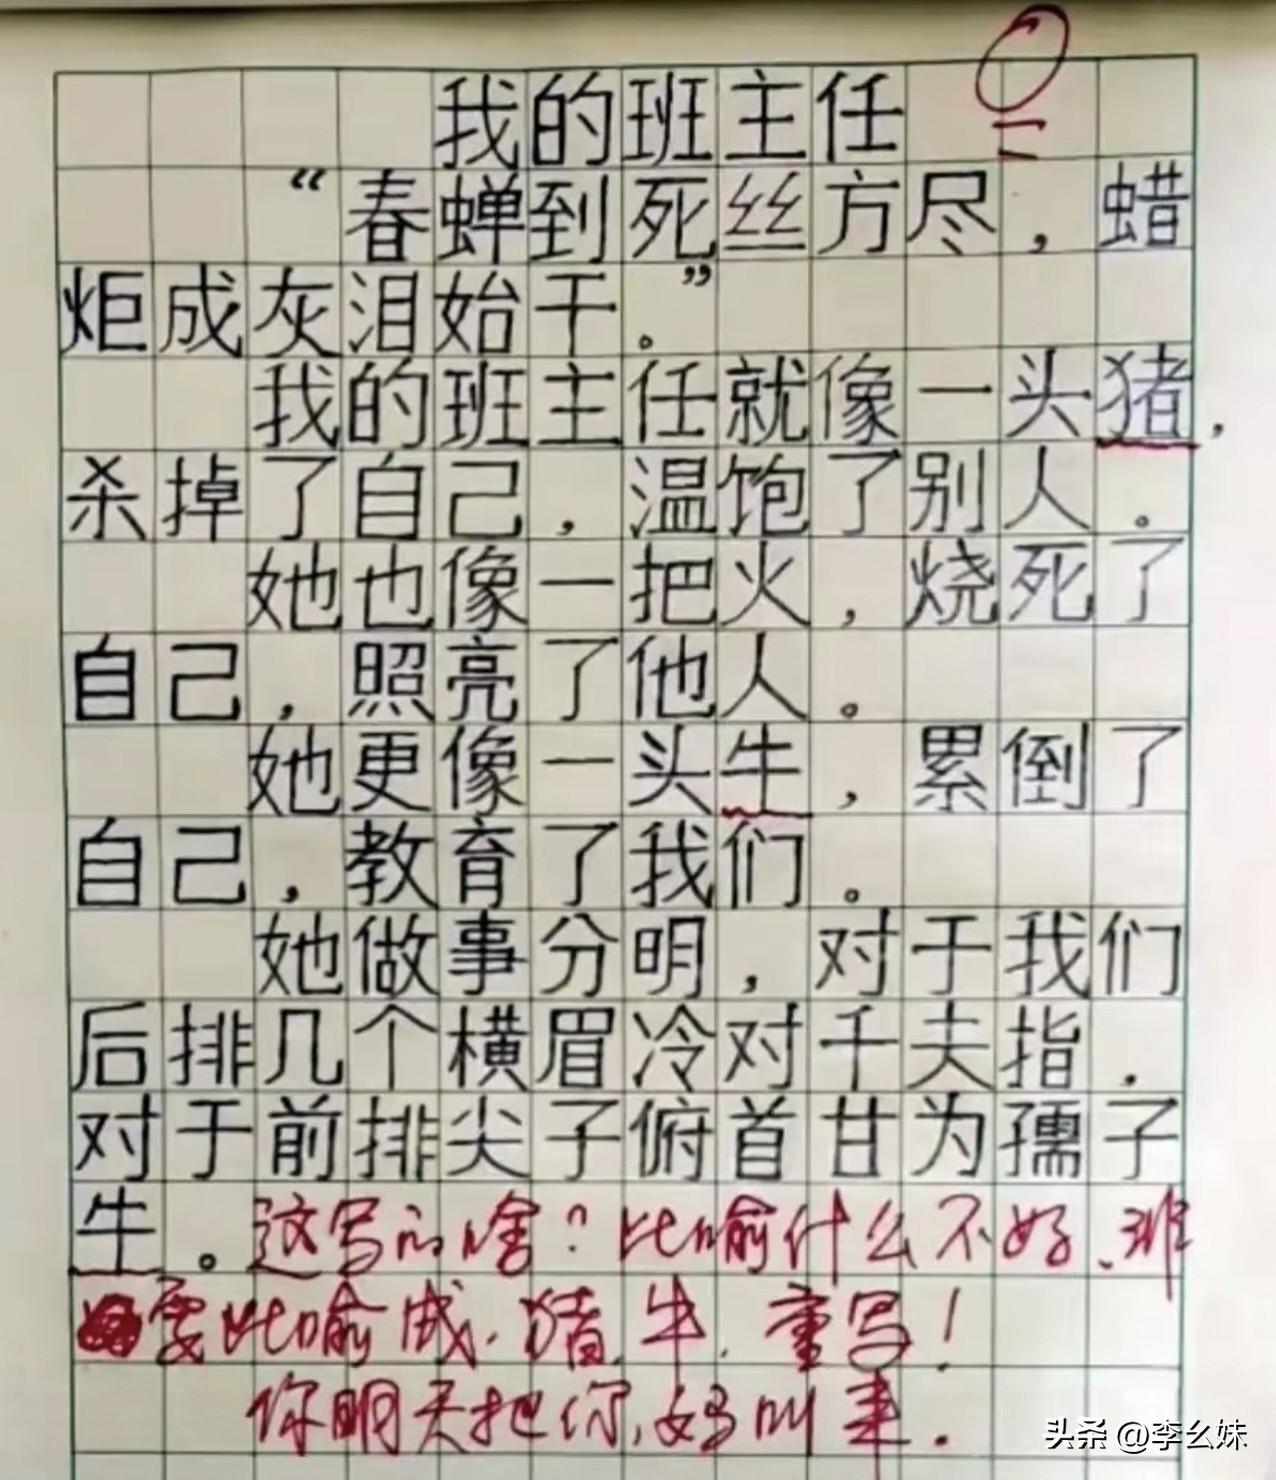 我的班主任
“春蝉到死丝方尽，蜡
炬成灰泪始干。”
我的班主任就像一头猪，
杀掉了自己，温饱了别人。
她也像一把火，烧死了
自己，照亮了他人。
她更像一头牛，累倒了
自己，教育了我们。
她做事分明，对于我们
后排几个横眉冷对千夫指．
对于前排尖子俯首甘为孺子
牛。这写的啥？比喻什么不好、非
要比喻成．猪．牛．重写！
你明天把你妈叫来．
头条 @李幺妹